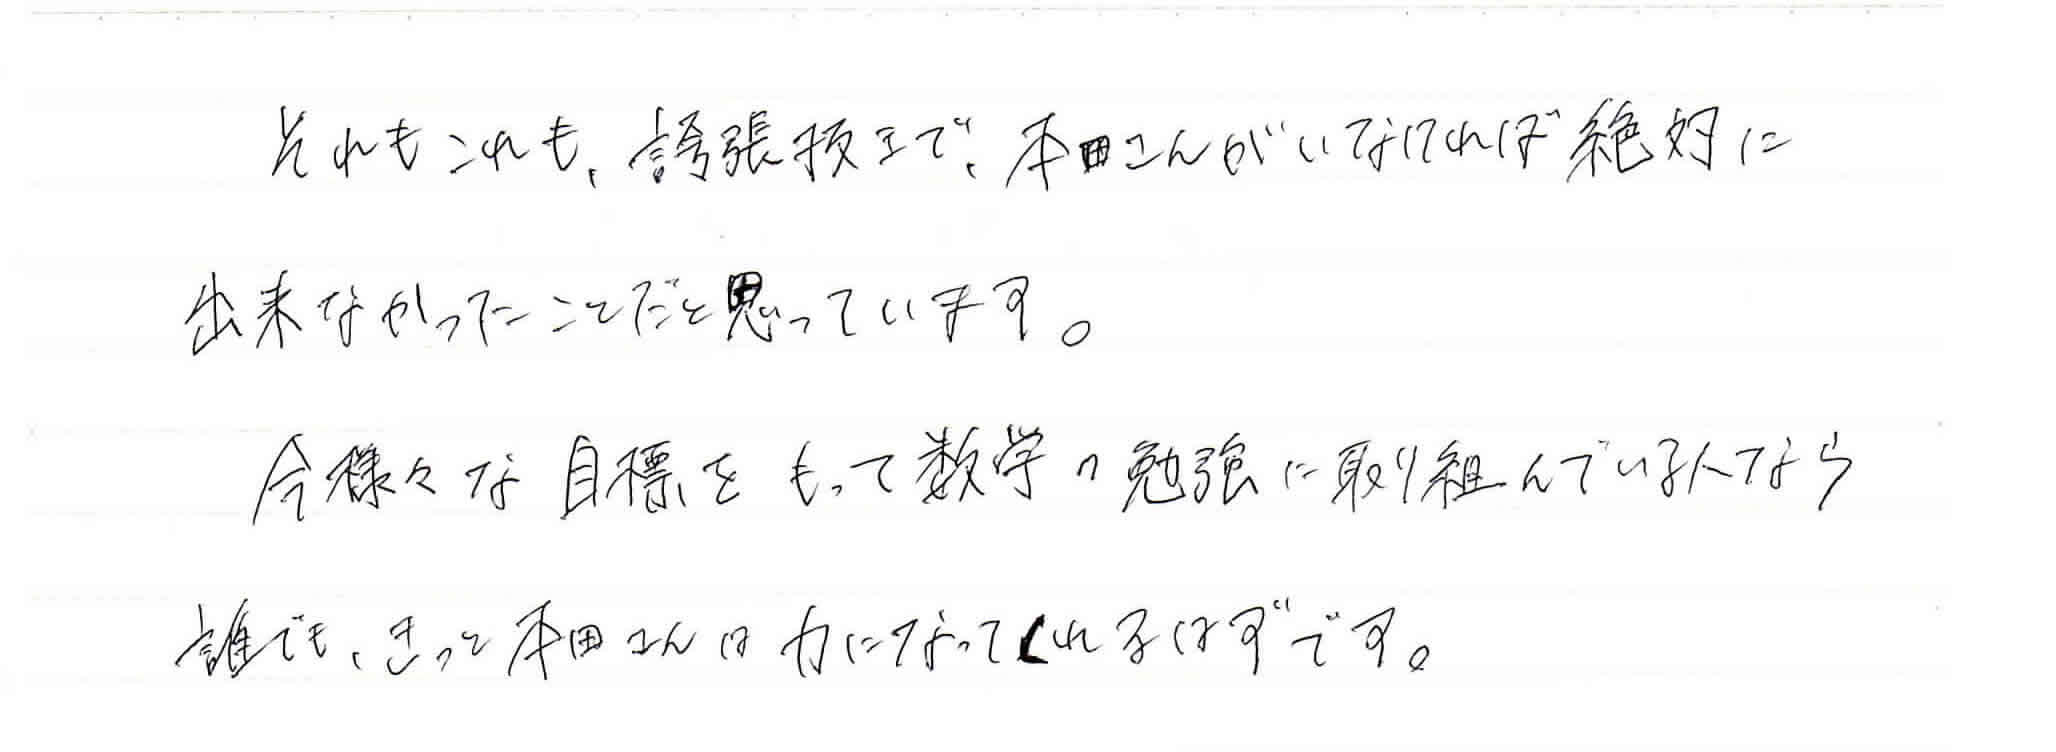 それもこれも、誇張抜きで、本田さんがいなければ絶対に
出来なかったことだと思っています。
今様々な目標をもって数学の勉強に取り組んでいる人なら
誰でも、きっと本田さんは力になってくれるはずです。